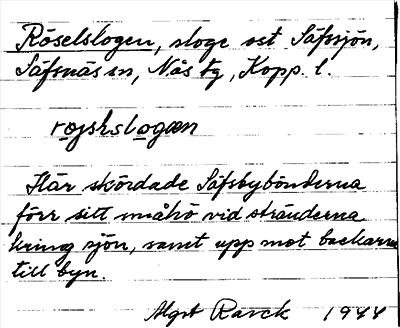 Röselslogen, sloge ost Säfssjön,
Säfsnäs sn, Nås tg, Kopp. l.
Här skördade Säfsbybönderna
förr sitt småhö vid stränderna
kring sjön, samt upp mot backarna
till byn.
Algot Barck 1944